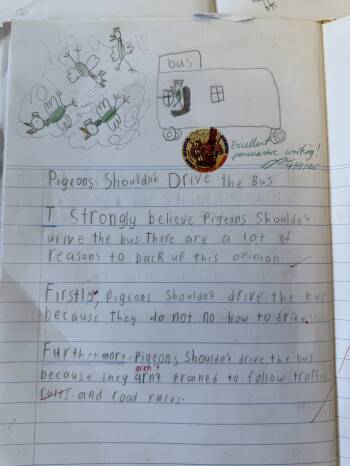 bus
Excellent
persuasive writing!
Pigeons Shouldn't Drive the Bus
I Strongly believe Pigeons Shouldn't
drive the bus. There are a lot of
reasons to back up this opinion
Firstly, Pigeons Shouldn't drive the bus
because they do not no how to drive.
Furthermore, Pigeons Shouldn't drive the bus
aren't
because they arn't trained to follow traffic
rules and road rules.